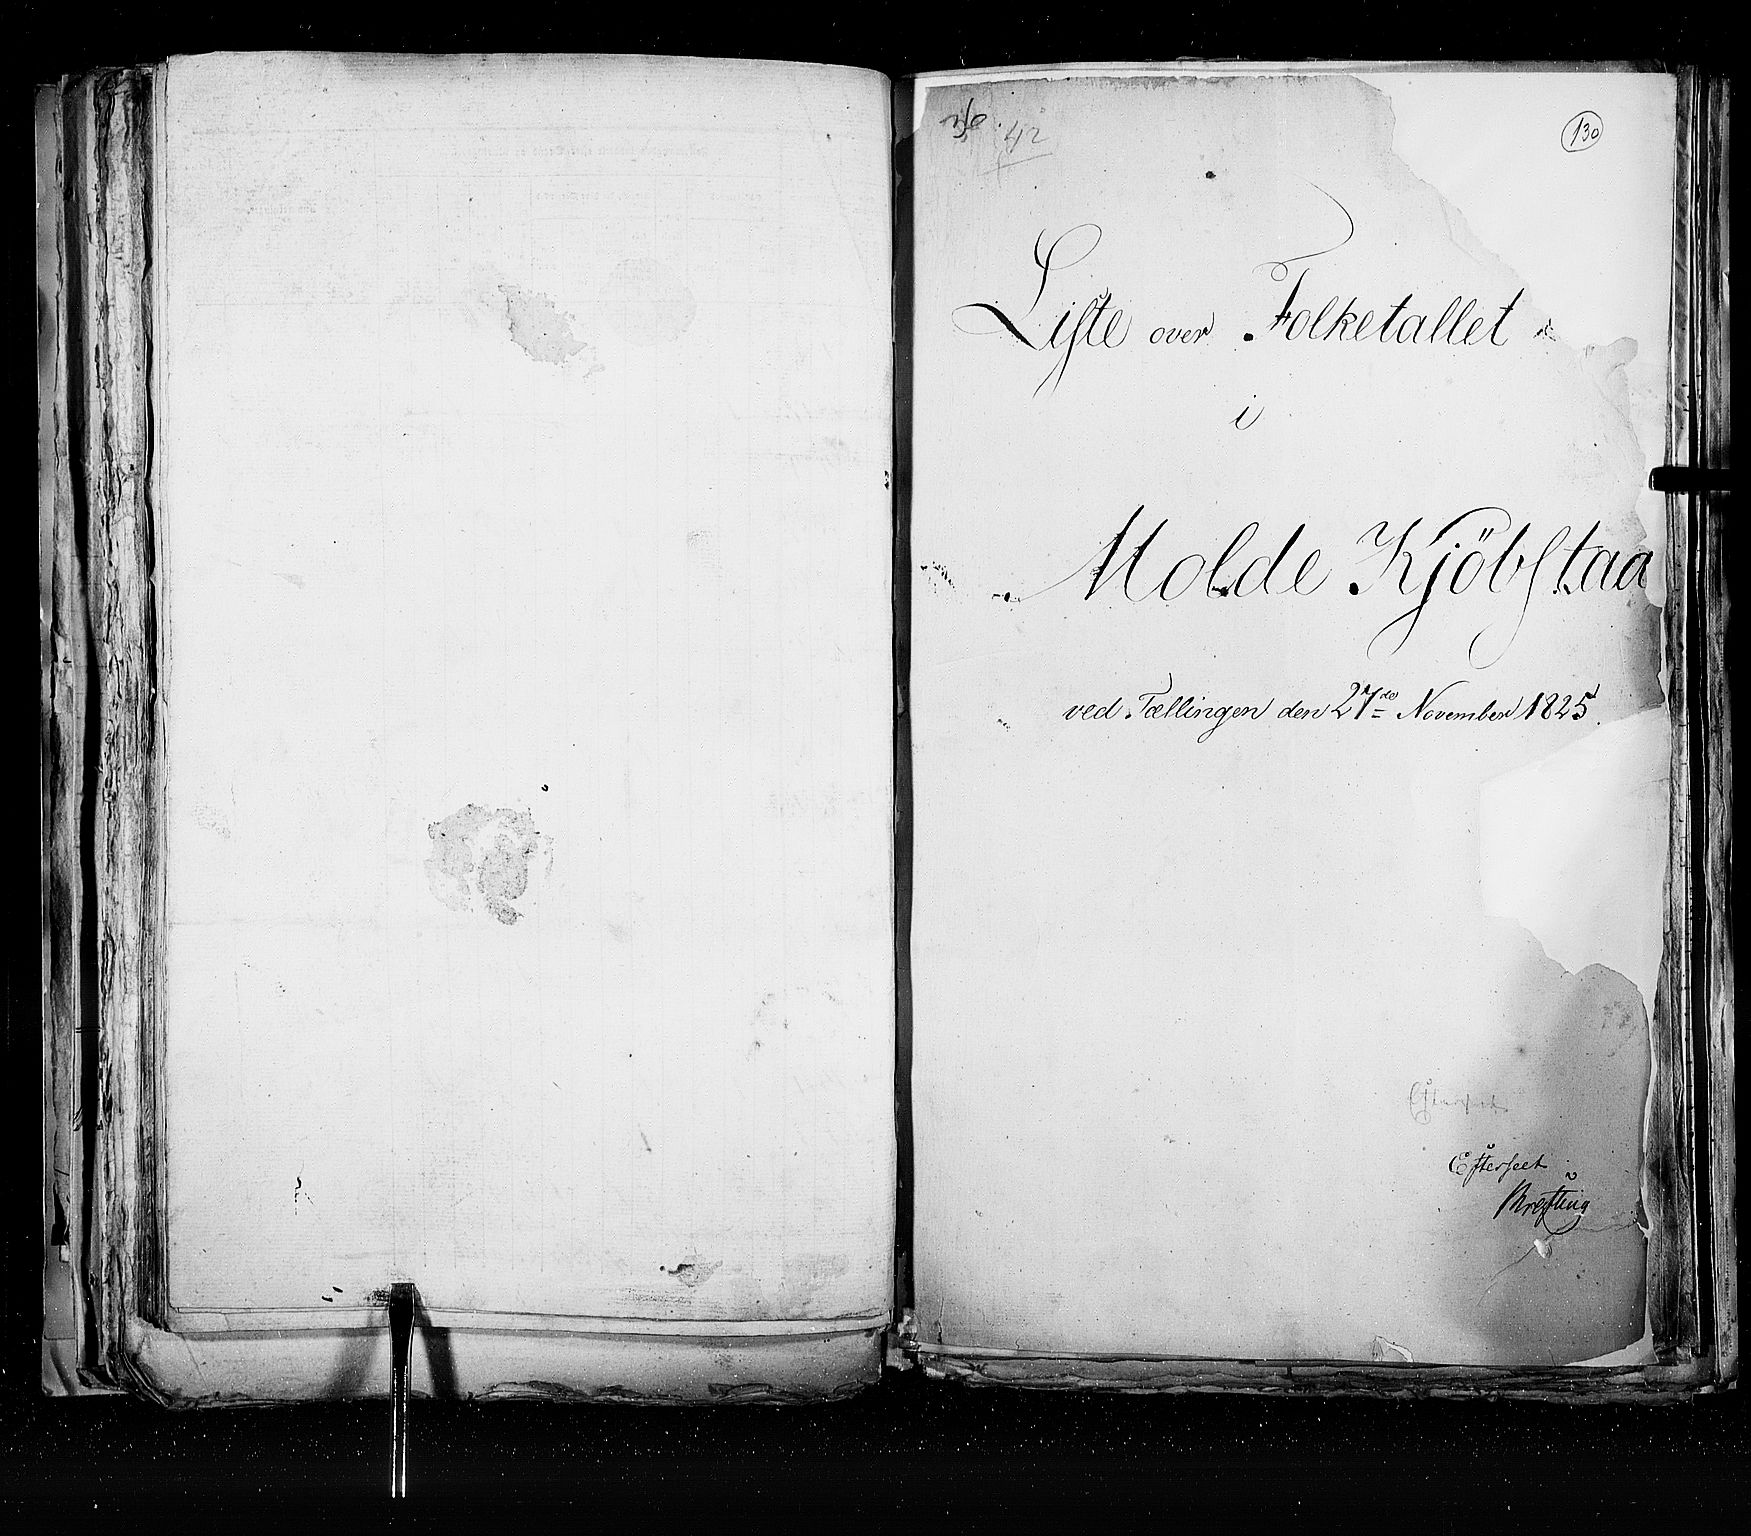 42
130
Liste over Folketallet
i
Molde Kjöbstaa
ved Tællingen den 27de November 1825.
Efterseet
Efterseet